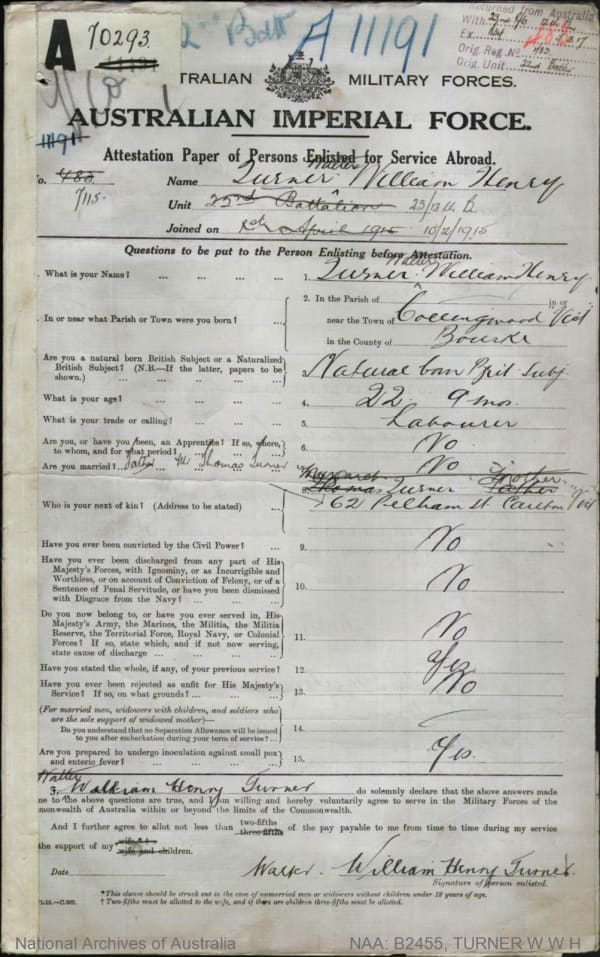 A
70293.
2nd Batt
A 11191
Returned from Australia
With
Ex.
Orig. Reg. No. 483
Orig. Unit 22nd Battn
TRALIAN MILITARY FORCES.
AUSTRALIAN IMPERIAL FORCE.
11191
Attestation Paper of Persons Enlisted for Service Abroad.
o. 483.
7115.
Walter
Name Turner William Henry
Unit 23rd Battalion 23/12th B
Joined on April 1915 10/2/1915
Questions to be put to the Person Enlisting before Attestation.
. What is your Name? ... ... ... ...
1. Turner Walter William Henry
. In or near what Parish or Town were you born? ...
2. In the Parish of in or
near the Town of Collingwood Vict
in the County of Bourke
. Are you a natural born British Subject or a Naturalized
British Subject? (N.B.—If the latter, papers to be
shown.) ... ... ... ...
3. Natural born Brit Subj.
. What is your age? ... ... ... ...
4. 22. 9 mos.
. What is your trade or calling? ... ... ...
5. Labourer
. Are you, or have you been, an Apprentice? If so, where,
to whom, and for what period? ... ... ...
6. No
. Are you married? ... ... ... ...
Father Mr Thomas Turner
No
. Who is your next of kin? (Address to be stated) ...
Margaret Mother
8. Thomas Turner Father
262 Pelham St Carlton Vict
. Have you ever been convicted by the Civil Power? ...
9. No
. Have you ever been discharged from any part of His
Majesty's Forces, with Ignominy, or as Incorrigible and
Worthless, or on account of Conviction of Felony, or of a
Sentence of Penal Servitude, or have you been dismissed
with Disgrace from the Navy? ... ... ...
10. No
. Do you now belong to, or have you ever served in, His
Majesty's Army, the Marines, the Militia, the Militia
Reserve, the Territorial Force, Royal Navy, or Colonial
Forces? If so, state which, and if not now serving,
state cause of discharge ... ... ... ...
11. No
. Have you stated the whole, if any, of your previous service?
12. Yes
. Have you ever been rejected as unfit for His Majesty's
Service? If so, on what grounds? ... ... ...
13. No
. (For married men, widowers with children, and soldiers who
are the sole support of widowed mother)—
Do you understand that no Separation Allowance will be issued
to you after embarkation during your term of service? ...
14.
. Are you prepared to undergo inoculation against small pox
and enteric fever? ... ... ... ...
15. Yes.
Walter
I, William Henry Turner do solemnly declare that the above answers made
me to the above questions are true, and I am willing and hereby voluntarily agree to serve in the Military Forces of the
monwealth of Australia within or beyond the limits of the Commonwealth.
And I further agree to allot not less than two-fifths three-fifths of the pay payable to me from time to time during my service
the support of my wife*† wife and children.
Date
Walter. William Henry Turner.
Signature of person enlisted.
*This clause should be struck out in the case of unmarried men or widowers without children under 18 years of age.
† Two-fifths must be allotted to the wife, and if there are children three-fifths must be allotted.
National Archives of Australia
NAA: B2455, TURNER W W H